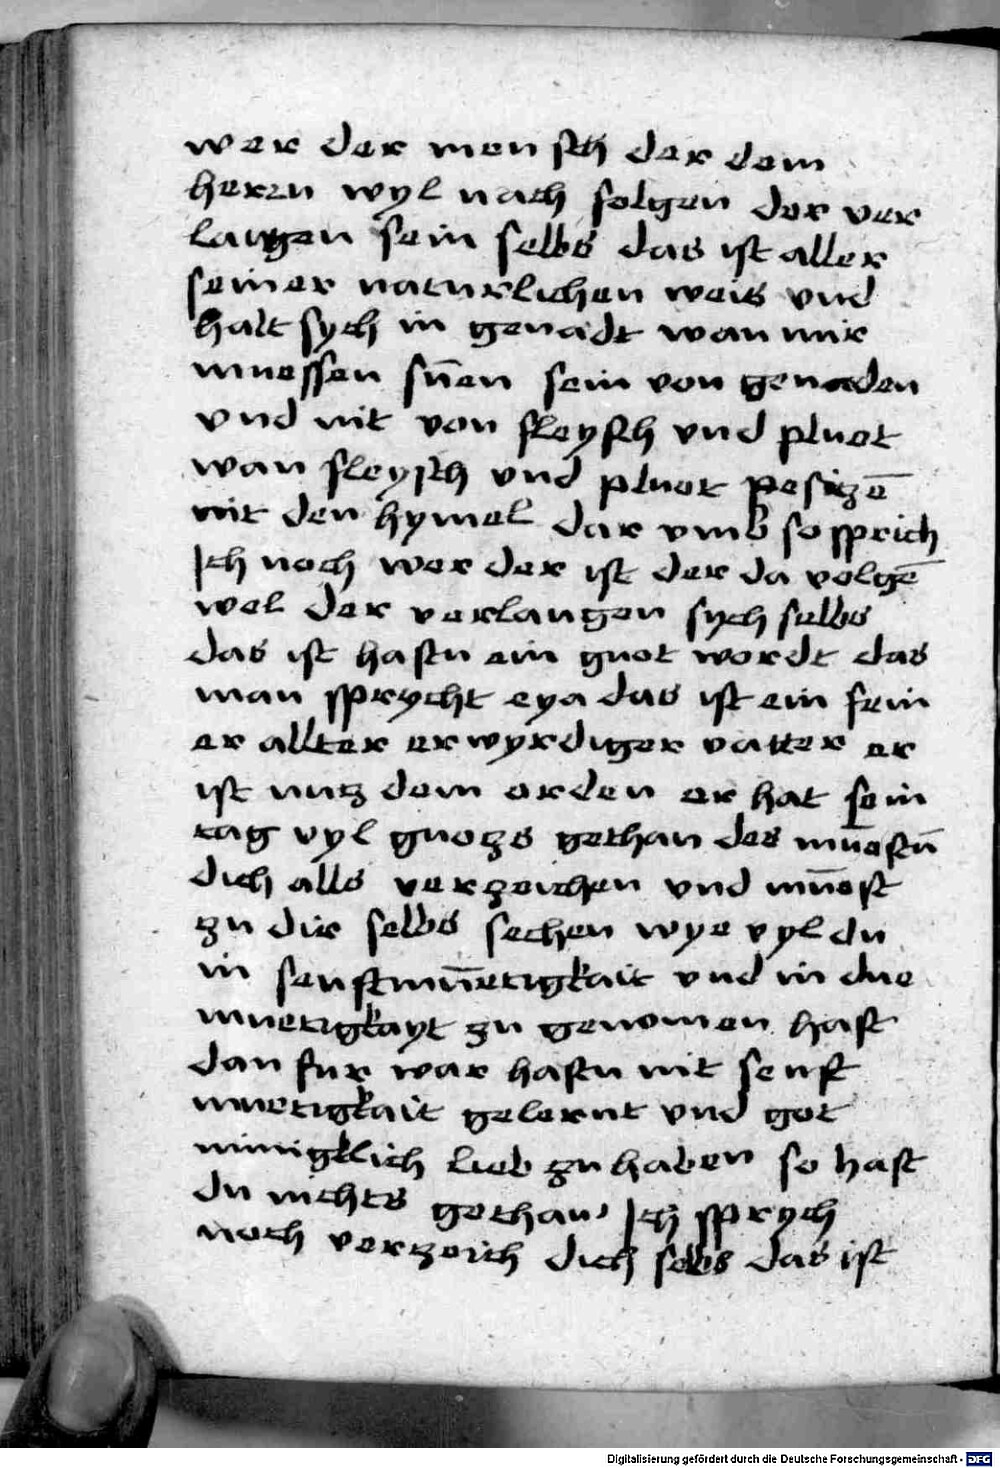 wer der mensch der dem
herrn wyl nach folgen der ver
laugen sein selbs das ist aller
seiner naturlichen weis vnd
halt sych in genadt wan mir
muessen sūen sein von genaden
vnd nit von fleysch vnd pluet
wan fleysch vnd pluet pesitzē
nit den hymel dar vmb so sprich
Ich noch wer der ist der da volgē
wel der verlaugen sych selbs
das ist hastu ein guot wordt das
man sprycht eya das ist ein fein
er allter erwyrdiger vatter er
ist nutz dem orden er hat sein
tag vyl guotzs gethan des muēstu
dich alls verzeichen vnd muēst
zu dir selbs sechen wye vyl du
in senftmūetigkait vnd in die
muetigkayt zu genomen hast
dan fur war hastu nit senft
muetigkait gelernt vnd got
minigklich lieb zu haben so hast
du nichts gethan Ich sprych
noch verzeich dich selbs das ist
Digitalisierung gefördert durch die Deutsche Forschungsgemeinschaft - DFG